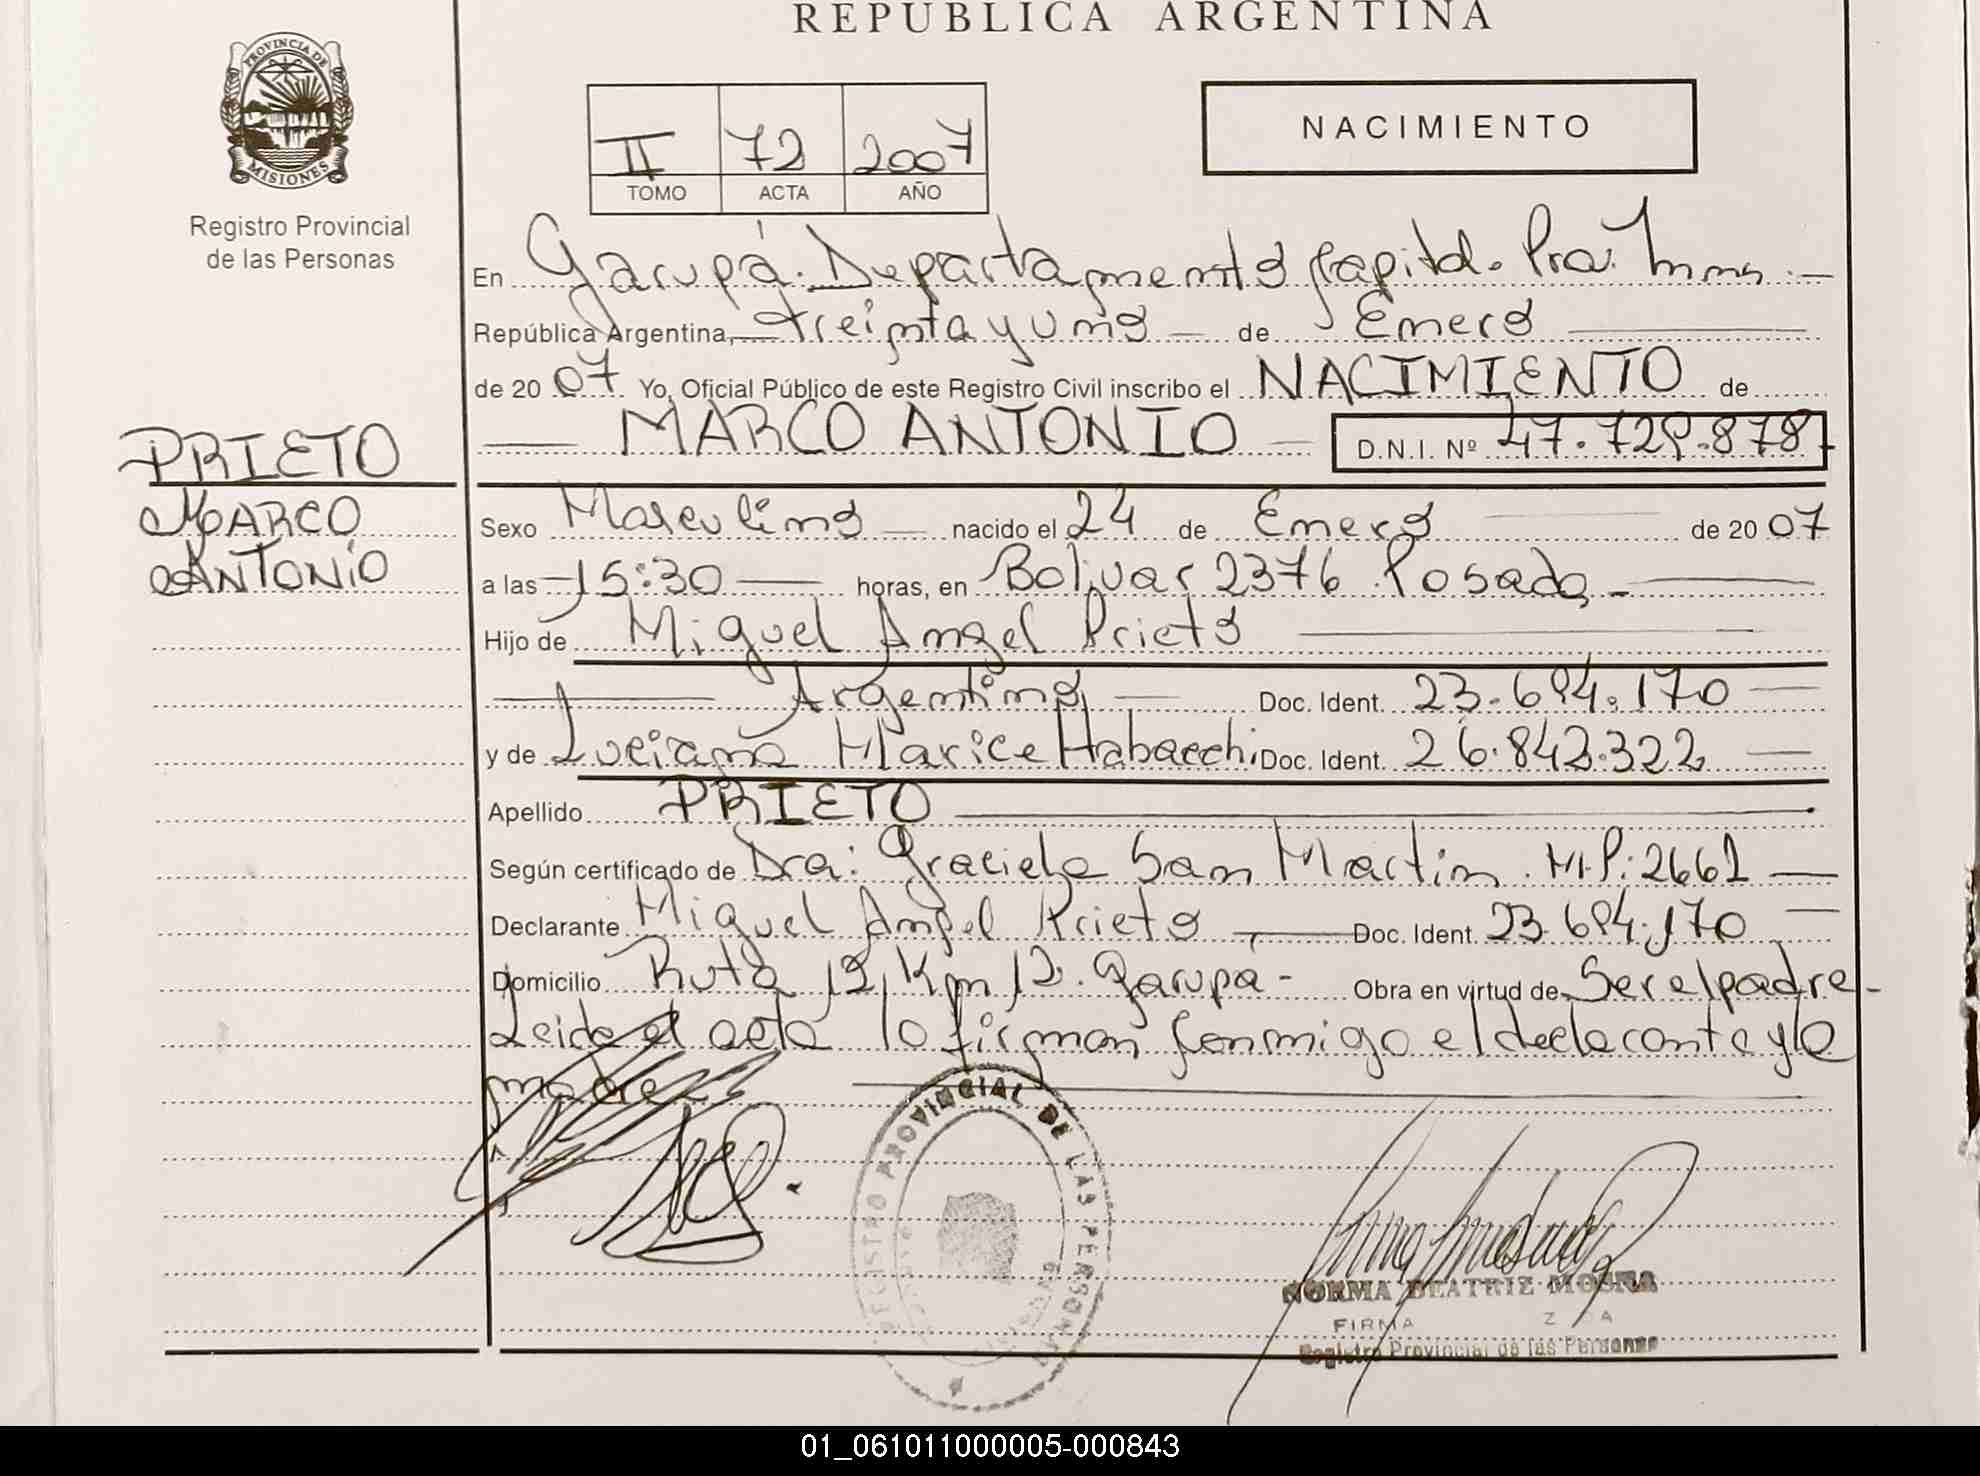 REPUBLICA ARGENTINA
PROVINCIA DE
MISIONES
Registro Provincial
de las Personas
II 72 2007
TOMO ACTA AÑO
NACIMIENTO
En Garupá. Departamento Capital. Pcia. Mnes.
República Argentina, treinta y uno de Enero
de 2007 Yo, Oficial Público de este Registro Civil inscribo el NACIMIENTO de
MARCO ANTONIO D.N.I. Nº 47.729.878
PRIETO
MARCO
ANTONIO
Sexo Masculino nacido el 24 de Enero de 2007
a las 15:30 horas, en Bolivar 2376 Posadas
Hijo de Miguel Angel Prieto
Argentino Doc. Ident. 23.694.170
y de Luciana Marice Habacchi Doc. Ident. 26.842.322
Apellido PRIETO
Según certificado de Dra: Graciela San Martin. M.P: 2661
Declarante Miguel Angel Prieto Doc. Ident. 23.694.170
Domicilio Ruta 12, Km 12. Garupá - Obra en virtud de Ser el padre-
Leida el acta lo firman conmigo el declarante y la
madre
REGISTRO PROVINCIAL DE LAS PERSONAS
NORMA BEATRIZ
FIRMA
Registro Provincial de las Personas
01_061011000005-000843